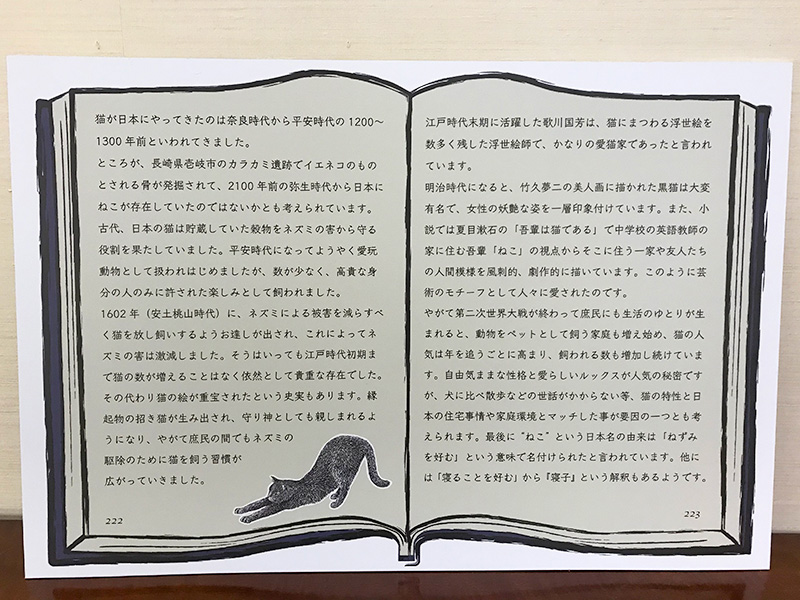 猫が日本にやってきたのは奈良時代から平安時代の1200～
1300年前といわれてきました。
ところが、長崎県壱岐市のカラカミ遺跡でイエネコのもの
とされる骨が発掘されて、2100年前の弥生時代から日本に
ねこが存在していたのではないかとも考えられています。
古代、日本の猫は貯蔵していた穀物をネズミの害から守る
役割を果たしていました。平安時代になってようやく愛玩
動物として扱われはじめましたが、数が少なく、高貴な身
分の人のみに許された楽しみとして飼われました。
1602年（安土桃山時代）に、ネズミによる被害を減らすべ
く猫を放し飼いするようお達しが出され、これによってネ
ズミの害は激減しました。そうはいっても江戸時代初期ま
で猫の数が増えることはなく依然として貴重な存在でした。
その代わり猫の絵が重宝されたという史実もあります。縁
起物の招き猫が生み出され、守り神としても親しまれるよ
うになり、やがて庶民の間でもネズミの
駆除のために猫を飼う習慣が
広がっていきました。
222
江戸時代末期に活躍した歌川国芳は、猫にまつわる浮世絵を
数多く残した浮世絵師で、かなりの愛猫家であったと言われ
ています。
明治時代になると、竹久夢二の美人画に描かれた黒猫は大変
有名で、女性の妖艶な姿を一層印象付けています。また、小
説では夏目漱石の「吾輩は猫である」で中学校の英語教師の
家に住む吾輩「ねこ」の視点からそこに住う一家や友人たち
の人間模様を風刺的、劇作的に描いています。このように芸
術のモチーフとして人々に愛されたのです。
やがて第二次世界大戦が終わって庶民にも生活のゆとりが生
まれると、動物をペットとして飼う家庭も増え始め、猫の人
気は年を追うごとに高まり、飼われる数も増加し続けていま
す。自由気ままな性格と愛らしいルックスが人気の秘密です
が、犬に比べ散歩などの世話がかからない等、猫の特性と日
本の住宅事情や家庭環境とマッチした事が要因の一つとも考
えられます。最後に“ねこ”という日本名の由来は「ねずみ
を好む」という意味で名付けられたと言われています。他に
は「寝ることを好む」から『寝子』という解釈もあるようです。
223